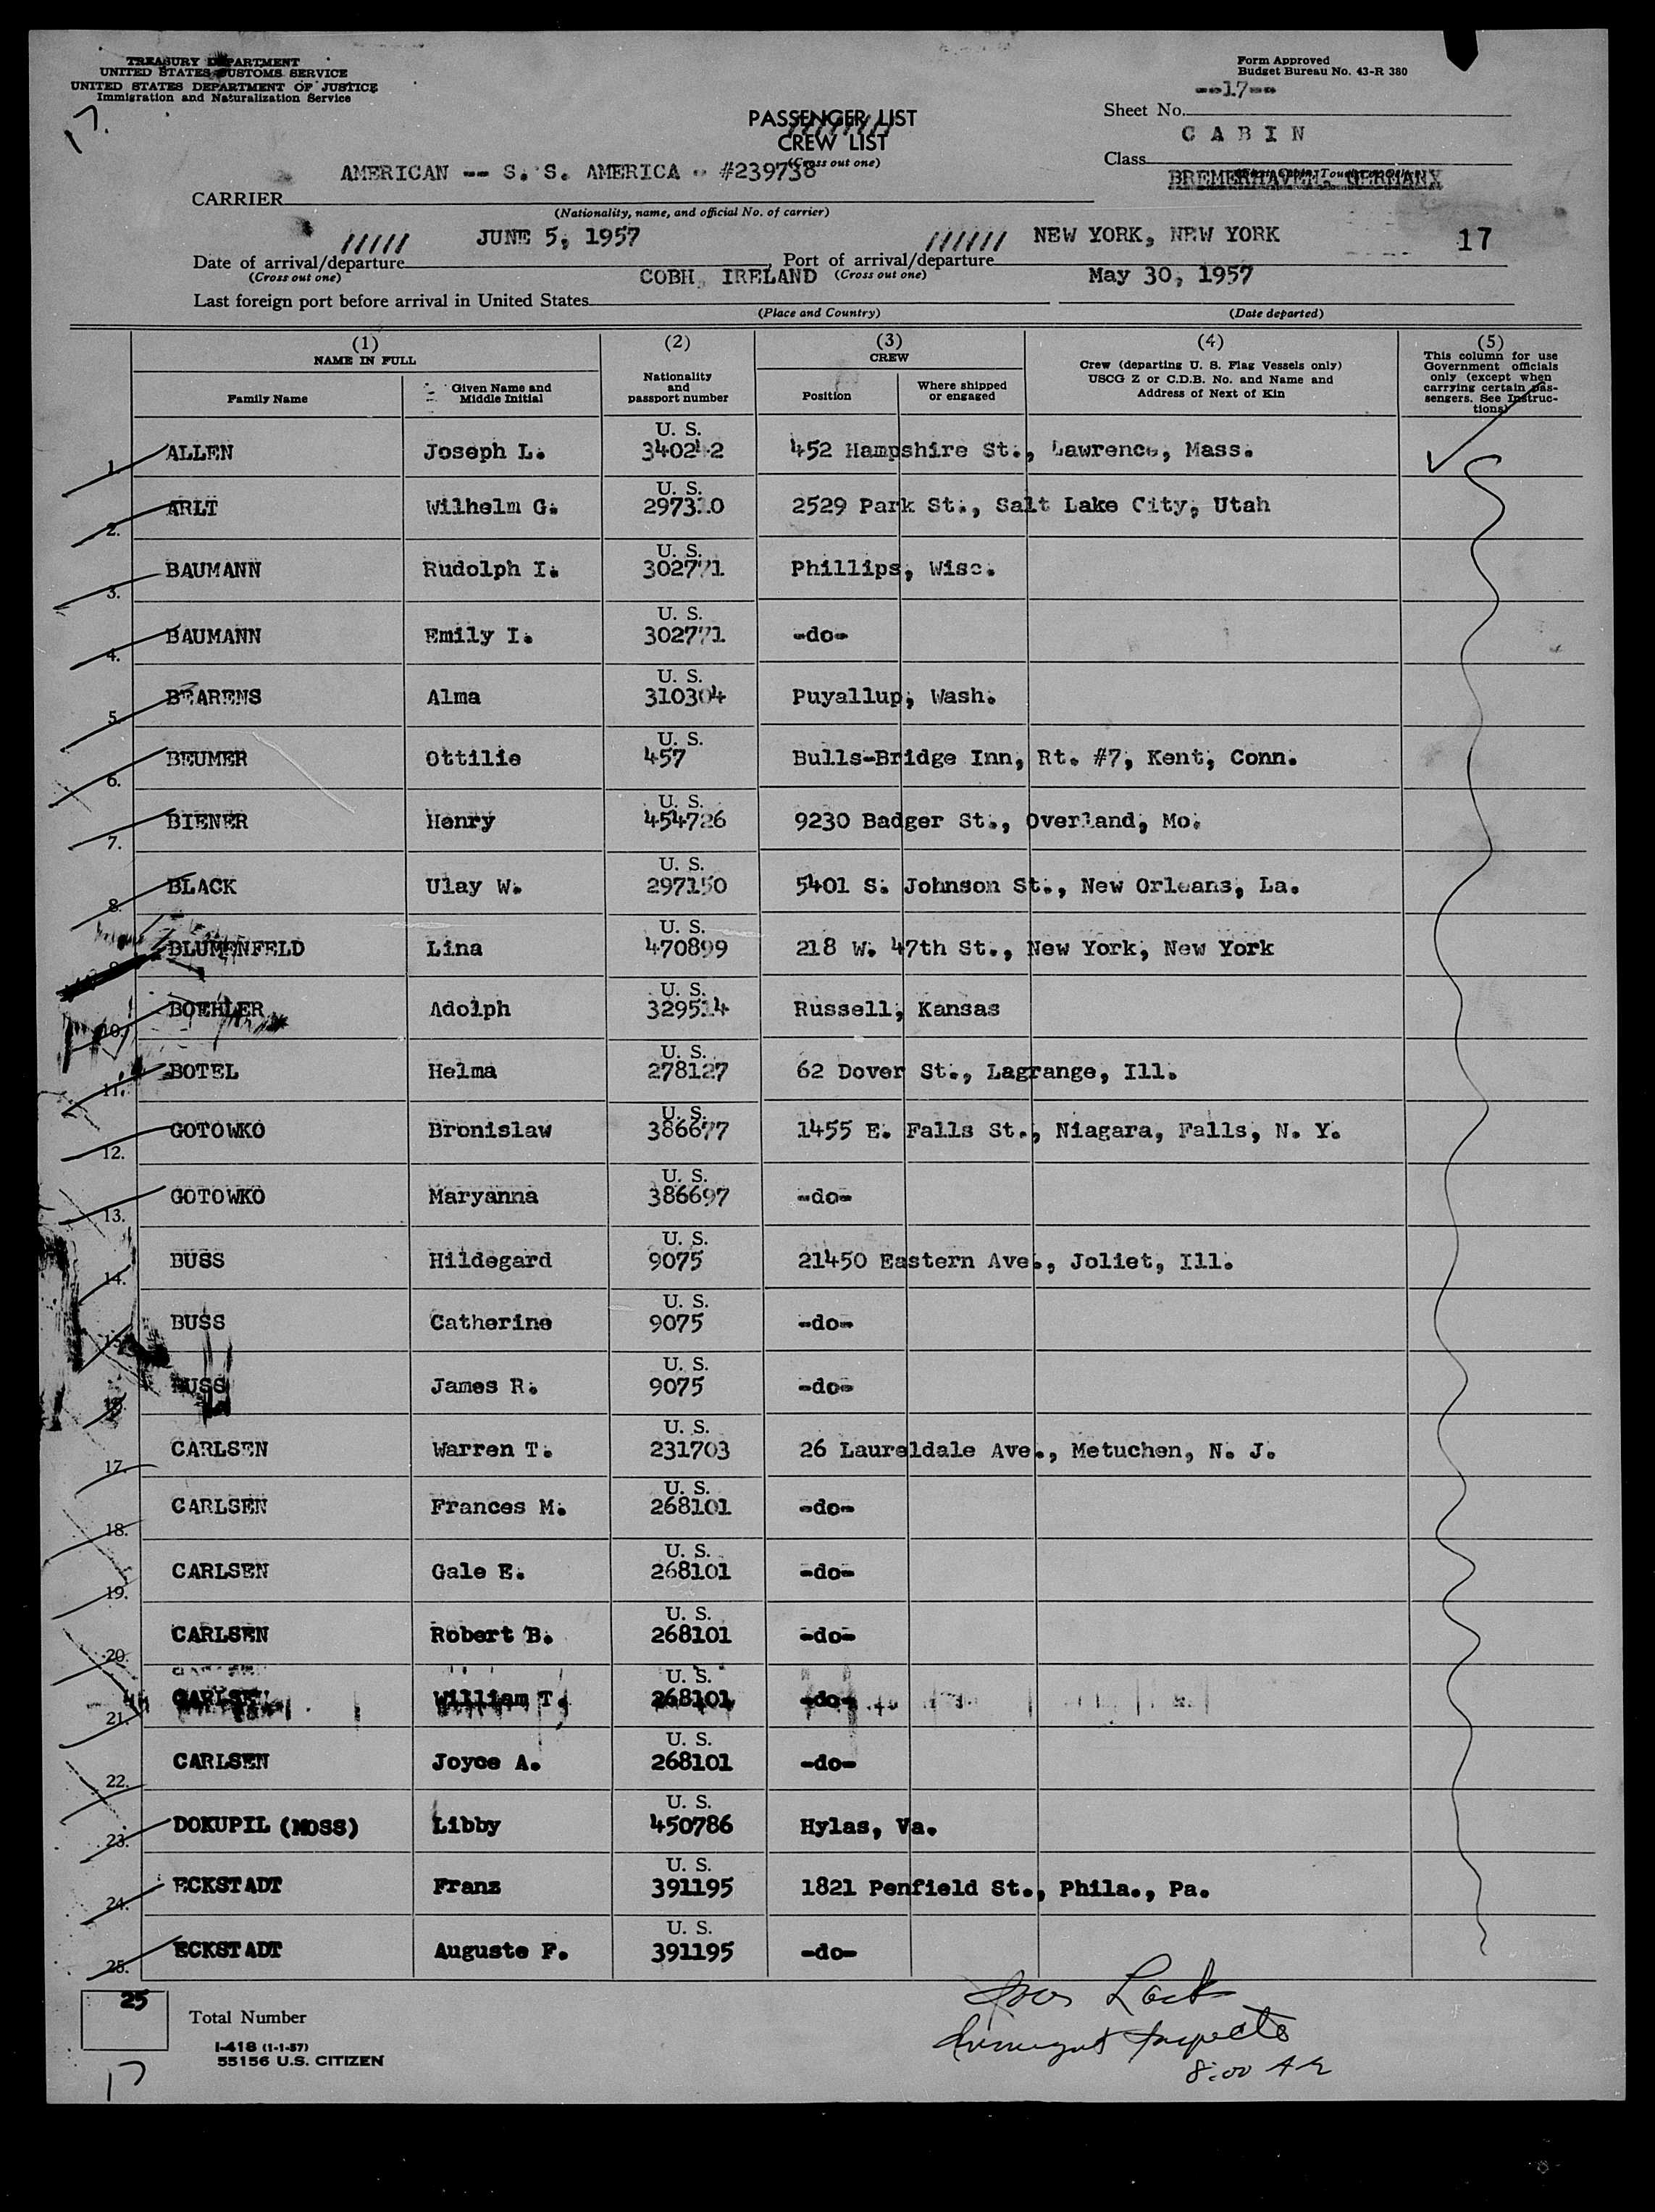 TREASURY DEPARTMENT
UNITED STATES CUSTOMS SERVICE
UNITED STATES DEPARTMENT OF JUSTICE
Immigration and Naturalization Service
17.
Form Approved
Budget Bureau No. 43-R 380
PASSENGER LIST
CREW LIST
(Cross out one)
Sheet No. --17--
Class CABIN
BREMERHAVEN, GERMANY
CARRIER AMERICAN -- S. S. AMERICA - #239738
(Nationality, name, and official No. of carrier)
Date of arrival/departure JUNE 5, 1957 Port of arrival/departure NEW YORK, NEW YORK 17
(Cross out one) (Cross out one)
Last foreign port before arrival in United States COBH, IRELAND May 30, 1957
(Place and Country) (Date departed)
(1) (2) (3) (4) (5)
NAME IN FULL
Family Name
Given Name and Middle Initial
Nationality and passport number
CREW
Position
Where shipped or engaged
Crew (departing U. S. Flag Vessels only)
USCG Z or C.D.B. No. and Name and
Address of Next of Kin
This column for use
Government officials
only (except when
carrying certain pas-
sengers. See Instruc-
tions)
1. ALLEN Joseph L. U. S. 340242 452 Hampshire St., Lawrence, Mass.
2. ARLT Wilhelm G. U. S. 297310 2529 Park St., Salt Lake City, Utah
3. BAUMANN Rudolph I. U. S. 302771 Phillips, Wisc.
4. BAUMANN Emily I. U. S. 302771 -do-
5. BEARENS Alma U. S. 310304 Puyallup, Wash.
6. BEUMER Ottilie U. S. 457 Bulls-Bridge Inn, Rt. #7, Kent, Conn.
7. BIENER Henry U. S. 454726 9230 Badger St., Overland, Mo.
8. BLACK Ulay W. U. S. 297150 5401 S. Johnson St., New Orleans, La.
9. BLUMENFELD Lina U. S. 470899 218 W. 47th St., New York, New York
10. BOEHLER Adolph U. S. 329514 Russell, Kansas
11. BOTEL Helma U. S. 278127 62 Dover St., Lagrange, Ill.
12. GOTOWKO Bronislaw U. S. 386677 1455 E. Falls St., Niagara, Falls, N. Y.
13. GOTOWKO Maryanna U. S. 386697 -do-
14. BUSS Hildegard U. S. 9075 21450 Eastern Ave., Joliet, Ill.
15. BUSS Catherine U. S. 9075 -do-
16. BUSS James R. U. S. 9075 -do-
17. CARLSEN Warren T. U. S. 231703 26 Laureldale Ave., Metuchen, N. J.
18. CARLSEN Frances M. U. S. 268101 -do-
19. CARLSEN Gale E. U. S. 268101 -do-
20. CARLSEN Robert B. U. S. 268101 -do-
21. CARLSEN William T. U. S. 268101 -do-
22. CARLSEN Joyce A. U. S. 268101 -do-
23. DOKUPIL (MOSS) Libby U. S. 450786 Hylas, Va.
24. ECKSTADT Franz U. S. 391195 1821 Penfield St., Phila., Pa.
25. ECKSTADT Auguste F. U. S. 391195 -do-
25 Total Number
I-418 (1-1-57)
55156 U.S. CITIZEN
17
8:00 AM